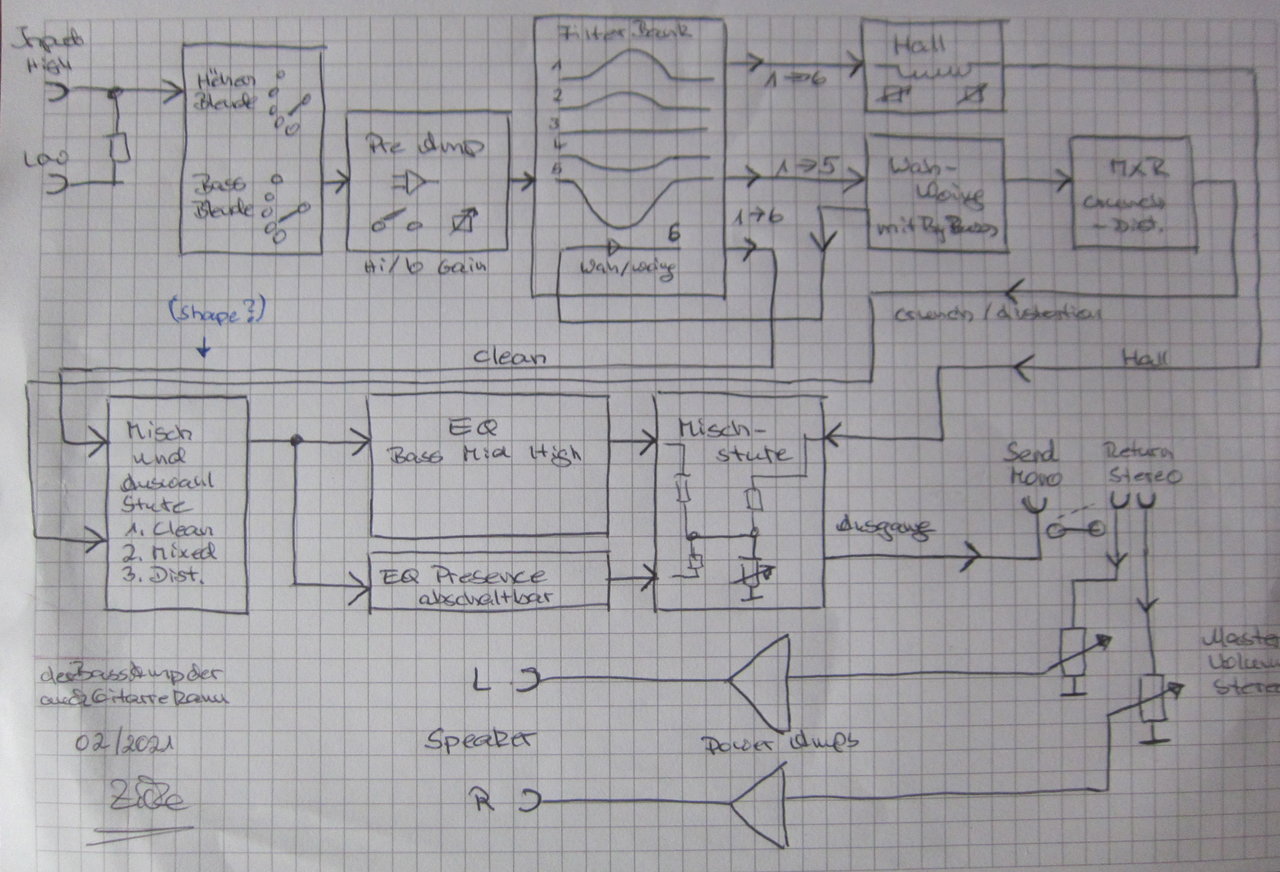 Input
High
Low
Höhen
Blende
Bass
Blende
Pre Amp
Hi/Lo Gain
Filter Bank
1
2
3
4
5
6
Wah/
1→6
1→5
1→6
Hall
Wah-
mit By Pass
MXR
crunch
-Dist.
crunch / distortion
Hall
(Shape?)
Clean
Misch
und
Auswahl
Stufe
1. Clean
2. Mixed
3. Dist.
EQ
Bass Mid High
EQ Presence
abschaltbar
Misch-
stufe
Ausgang
Send
Mono
Return
Stereo
Master
Volum
Stereo
der Bass Amp der
auch Gitarre kann
02/2021
L
Speaker
R
Power Amps